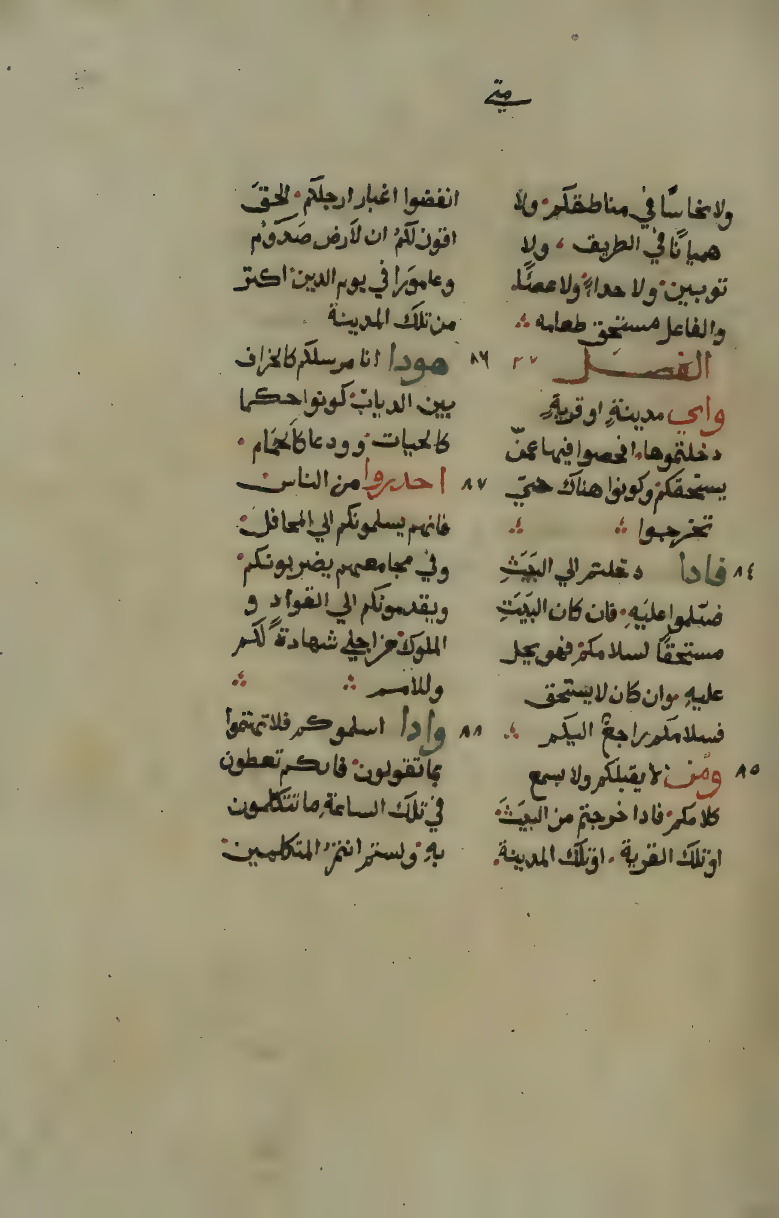 متي
ولا نحاسًا في مناطقكم ولا
هميانًا في الطريق ، ولا
توبين ولا حداءً ولا عصًا.
والفاعل مستحق طعامه
الفصل ٢٧
واي مدينةٍ او قريةٍ
دخلتموها. افحصوا فيها عمّن
يستحقكم وكونوا هناك حتي
تخرجوا
٨٤ فادا دخلتم الي البَيَتِ
فسّلموا عليَهِ. فان كان البَيَتِ
مستحقًا لسلامكم فهو يحل
عليهِ وان كان لا يستحق
فسلامكم راجعٌ اليكم
٨٥ ومَن لا يقبلكم ولا يسمع
كلامكم فادا خرجتم من البيَت
او تلك القرية . او تلك المدينة.
انفضوا اغبار ارجلكم . الحقَ
اقول لكم ان لارض صَدوم
وعامورا في يوم الدين اكتر
من تلك المدينة
٨٦ هودا انا مرسلكم كالخراف
بين الدياب كونوا حكما
كالحيات وودعا كالحمام .
٨٧ احدروا من الناس
فانهم يسلمونكم الي المحافل
وفي مجامعهم يضربونكم
ويقدمونكم الي القواد و
الملوك من اجلي شهادةً لكم
وللامم
٨٨ وادا اسلموكم فلا تهتموا
بما تقولون فانكم تعطون
في تلك الساعة ما تتكلمون
بهِ ولستم انتم المتكلمين